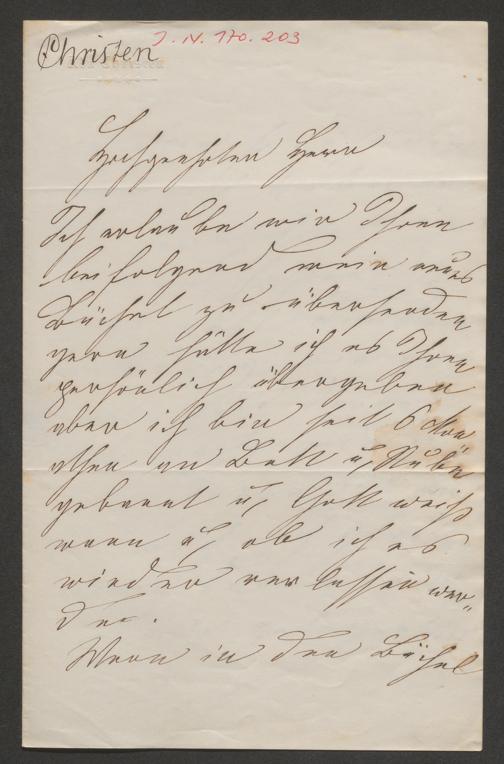 Christen
J. N. 170.203
Hochgeehrten Herrn
Ich erlaube mir Ihnen
beifolgend mein neues
Büchel zu übersenden
gern hätte ich es Ihnen
persönlich übergeben
aber ich bin seit 6 Mon
athen an Bett u Stube
gebannt u, Gott weiß
wann u, ob ich es
wieder verlassen wer„
de.
Wenn in den Büchel